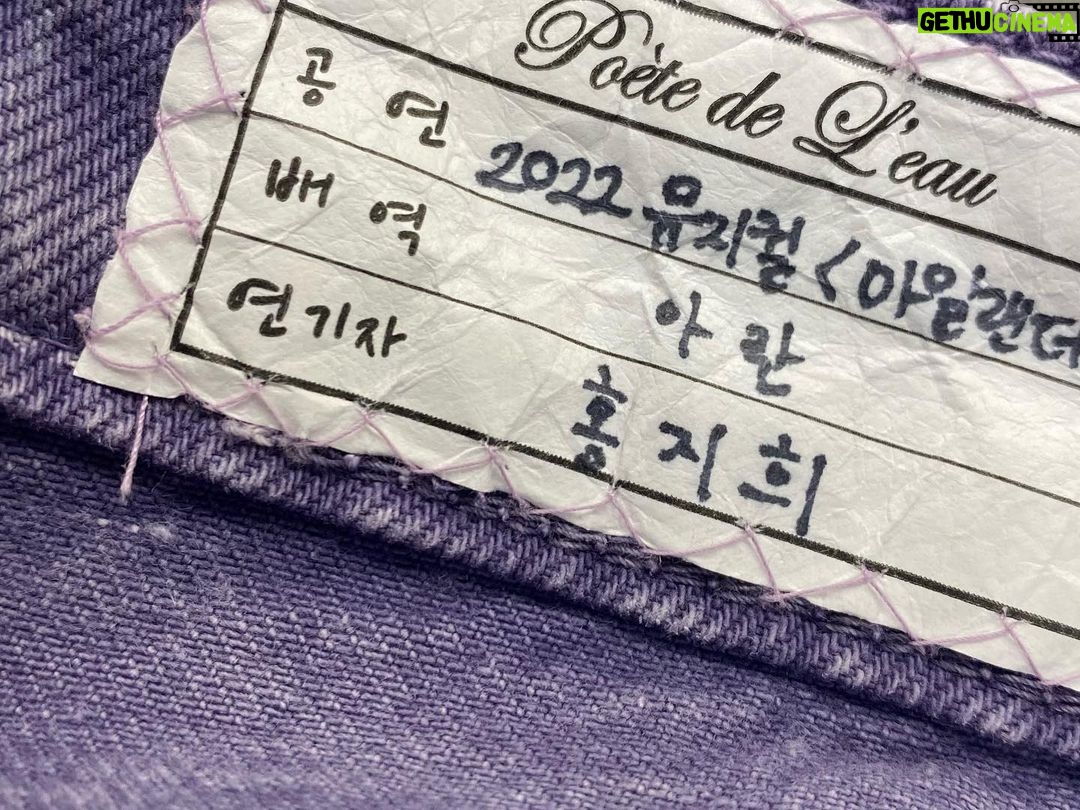 GETHUCINEMA
Poète de L'eau
공 연 2022 뮤지컬 <아일랜더
배 역 아 란
연기자 홍 지 희